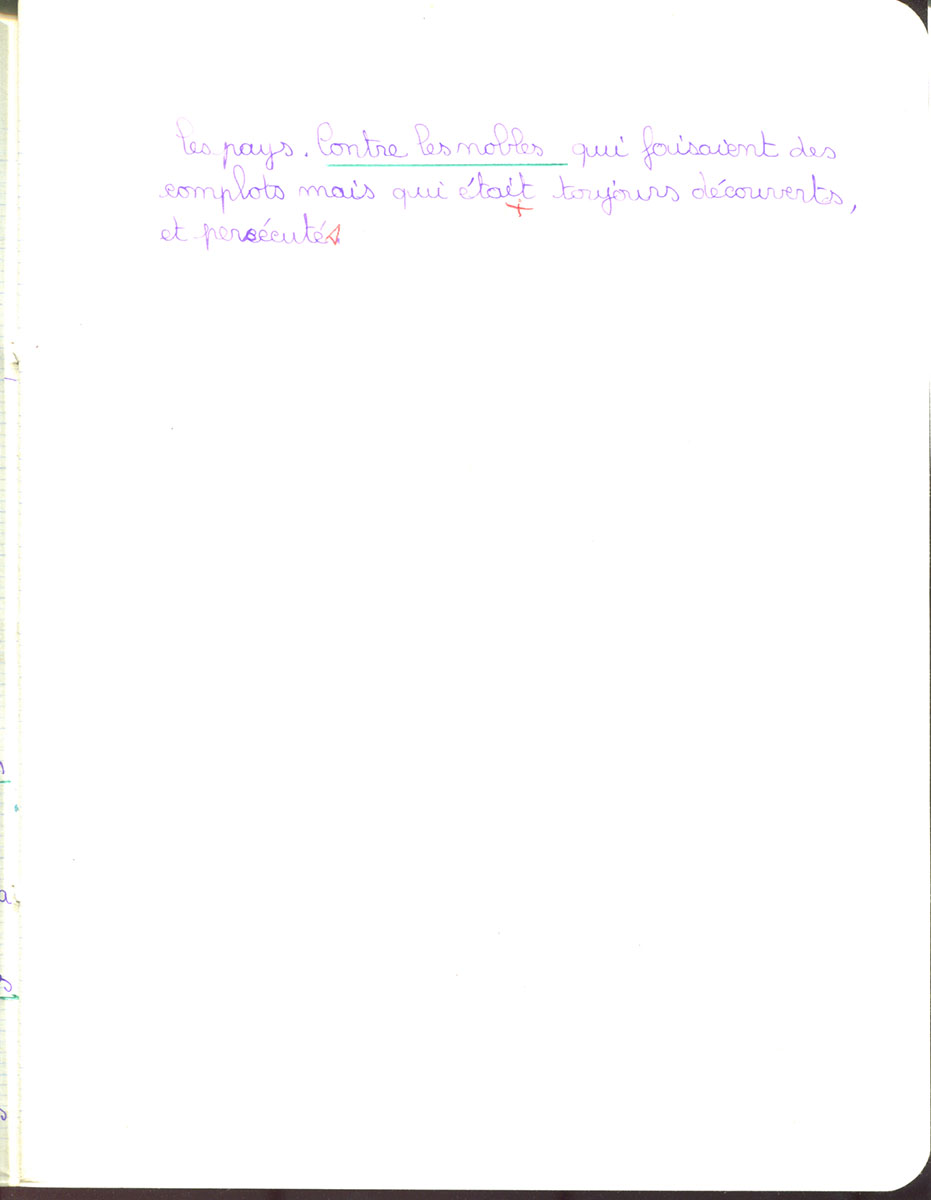 les pays. Contre les nobles qui faisaient des
complots mais qui était toujours découverts,
et persécutés